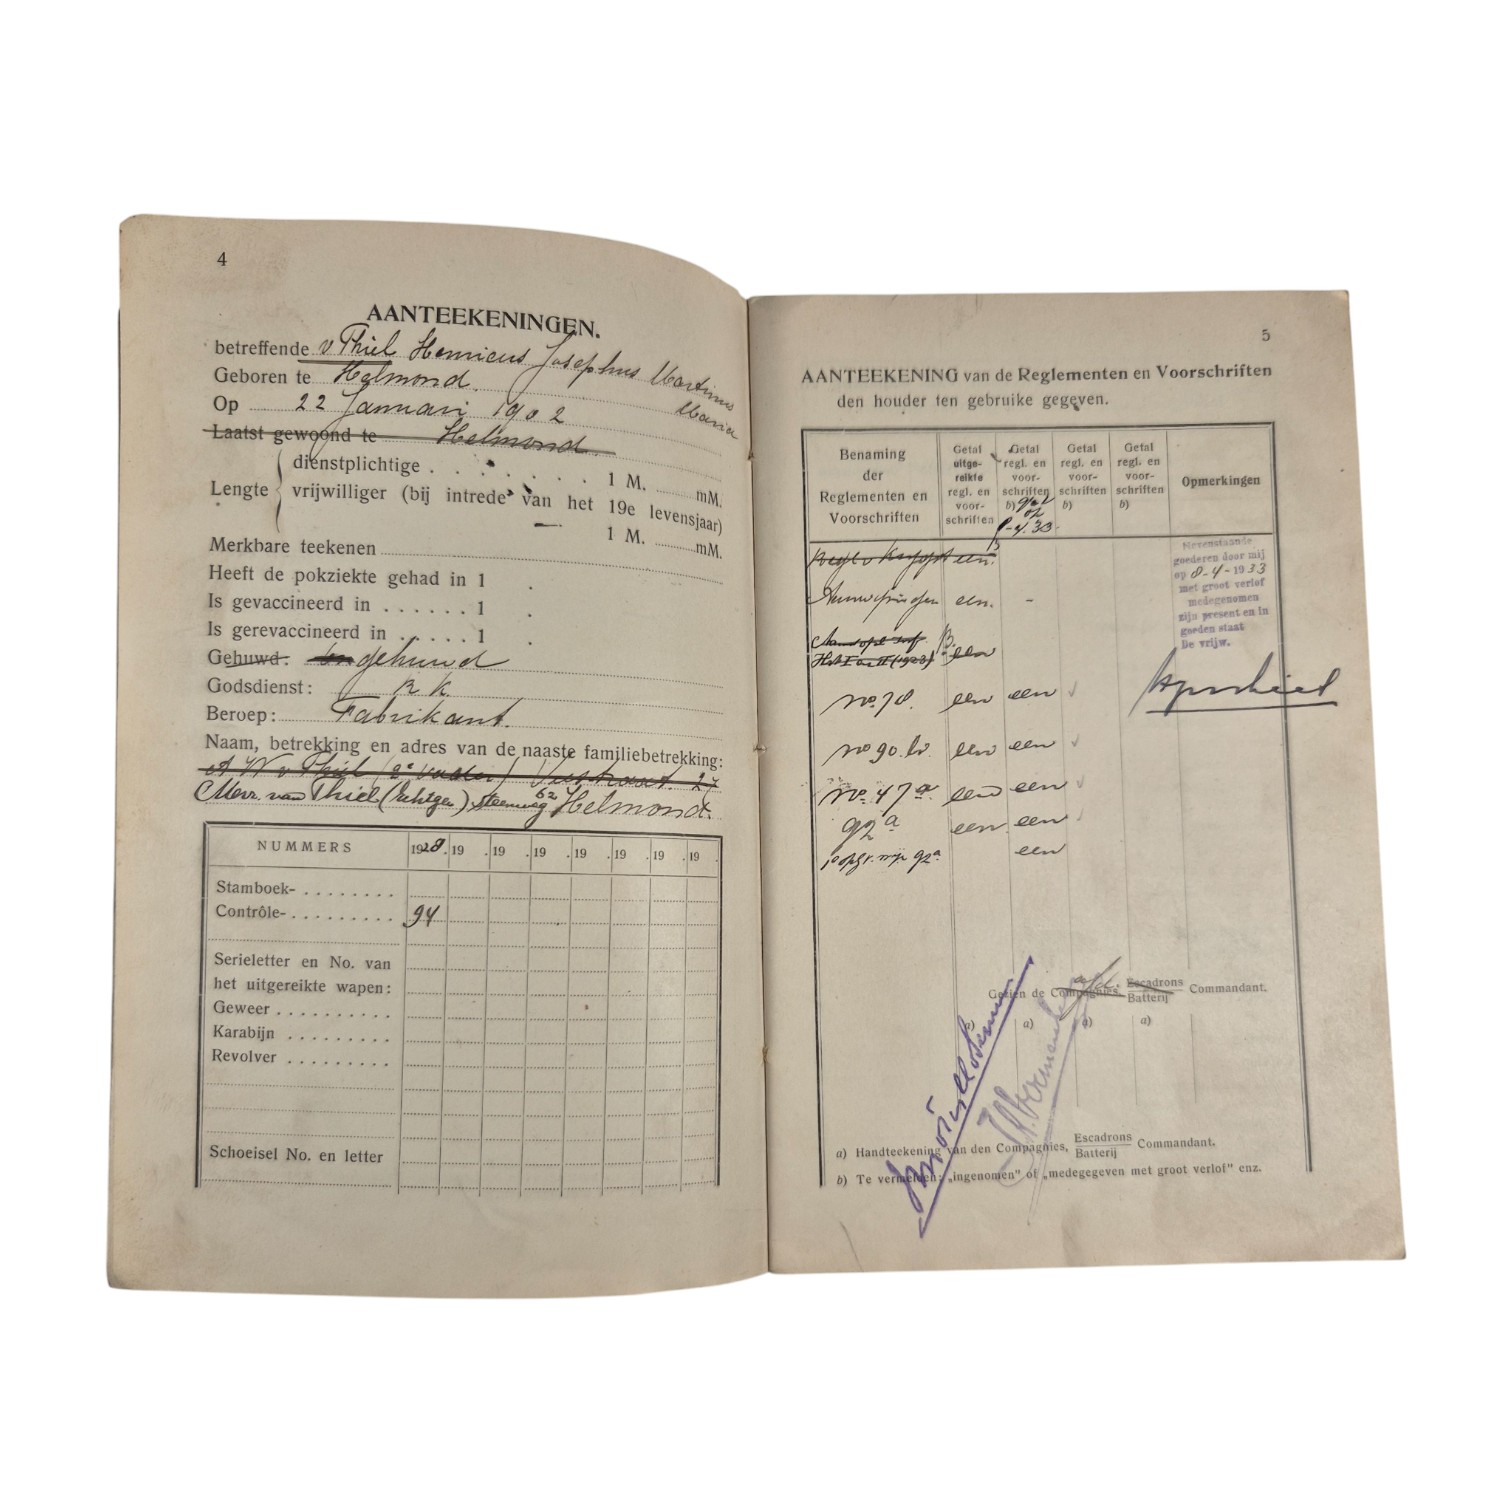 4
AANTEEKENINGEN.
betreffende v Thiel Henricus Josephus Martinus
Maria
Geboren te Helmond.
Op 22 Januari 1902
Laatst gewoond te Helmond
Lengte
dienstplichtige . . . . . . . 1 M. mM.
vrijwilliger (bij intrede van het 19e levensjaar)
1 M. mM.
Merkbare teekenen
Heeft de pokziekte gehad in 1 .
Is gevaccineerd in . . . . . . 1 .
Is gerevaccineerd in . . . . . 1 .
Gehuwd: gehuwd
Godsdienst: R K.
Beroep: Fabrikant.
Naam, betrekking en adres van de naaste familiebetrekking:
v Thiel 27
Mevr. van Thiel (Echtgen) steenweg 62 Helmond.
NUMMERS 1928. 19 . 19 . 19 . 19 . 19 . 19 . 19 .
Stamboek- . . . . . . . .
Contrôle- . . . . . . . . . 94
Serieletter en No. van
het uitgereikte wapen:
Geweer . . . . . . . . . .
Karabijn . . . . . . . . .
Revolver . . . . . . . . .
Schoeisel No. en letter
5
AANTEEKENING van de Reglementen en Voorschriften
den houder ten gebruike gegeven.
Benaming
der
Reglementen en
Voorschriften
Getal
uitge-
reikte
regl. en
voor-
schriften
Getal
regl. en
voor-
schriften
b)
8-4.33.
Getal
regl. en
voor-
schriften
b)
Getal
regl. en
voor-
schriften
b)
Opmerkingen
een.
een. -
een
No. 78. een een
No 90. b een een
No. 47a. een een
92a een een
92a. een
Nevenstaande
goederen door mij
op 8-4-1933
met groot verlof
medegenomen
zijn present en in
goeden staat
De vrijw.
Gezien de Compagnies, Escadrons
Batterij Commandant.
a) a) a)
a) Handteekening van den Compagnies, Escadrons
Batterij Commandant.
b) Te vermelden: „ingenomen" of „medegegeven met groot verlof" enz.